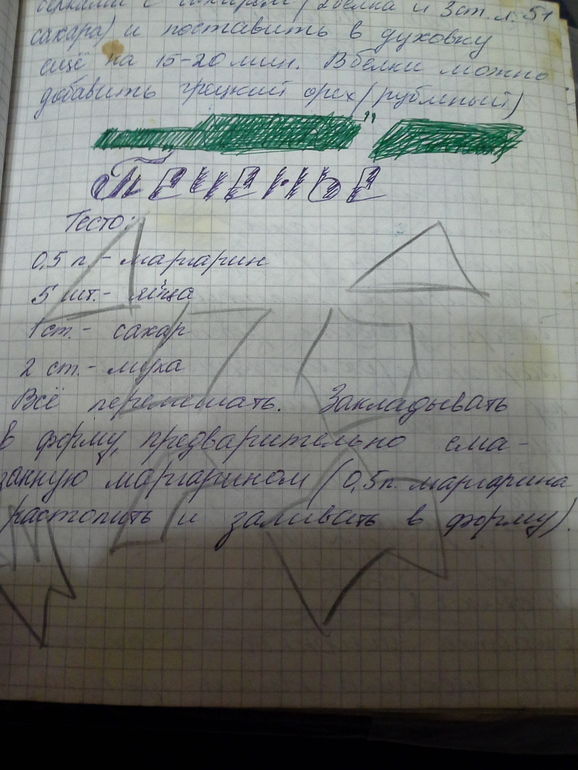 белками с сахаром (2белка и 3 ст. л. 51
сахара) и поставить в духовку
ещё на 15-20 мин. В белки можно
добавить грецкий орех (рубленый)
"
Печенье
Тесто:
0,5 п - маргарин
5 шт. - яйца
1 ст. - сахар
2 ст. - мука
Всё перемешать. Закладывать
в форму, предварительно сма-
занную маргарином (0,5п. маргарина
растопить и заливать в форму).